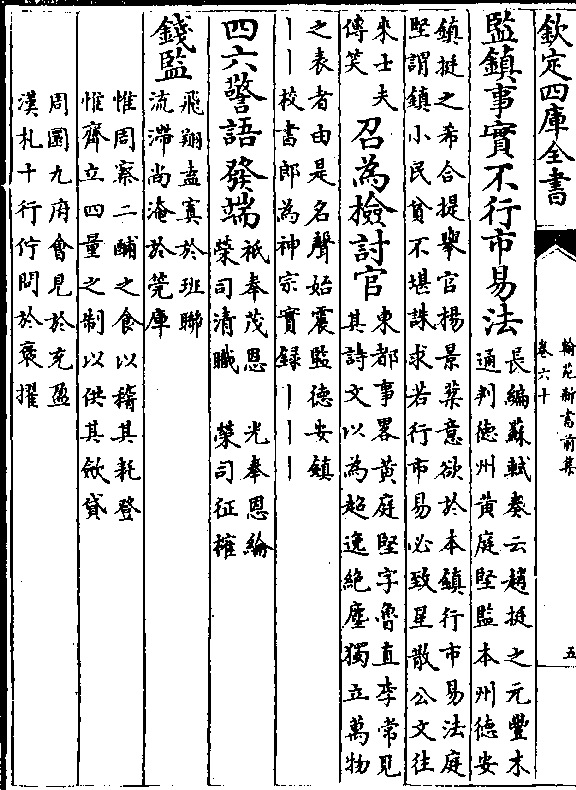 欽定四庫全書
翰苑新書前集
卷六十
五
監鎮事實不行市易法
長編蘇軾奏云趙挺之元豐末
通判徳州黄庭堅監本州徳安
鎮挺之希合提舉官楊景棻意欲於本鎮行市易法庭
堅謂鎮小民貧不堪誅求若行市易必致星散公文往
來士夫
傳笑
召為檢討官
東都事畧黄庭堅字魯直李常見
其詩文以為超逸絶塵獨立萬物
之表者由是名聲始震監徳安鎮
丨丨校書郎為神宗實録丨丨丨
四六警語發端
祗奉茂恩 光奉恩綸
榮司清職 榮司征榷
錢監
飛翔盍寘於班聯
流滯尚淹於筦庫
惟周察二鬴之食以稽其耗登
惟齊立四量之制以供其歛貸
周圜九府會見於充盈
漢札十行佇問於褒擢